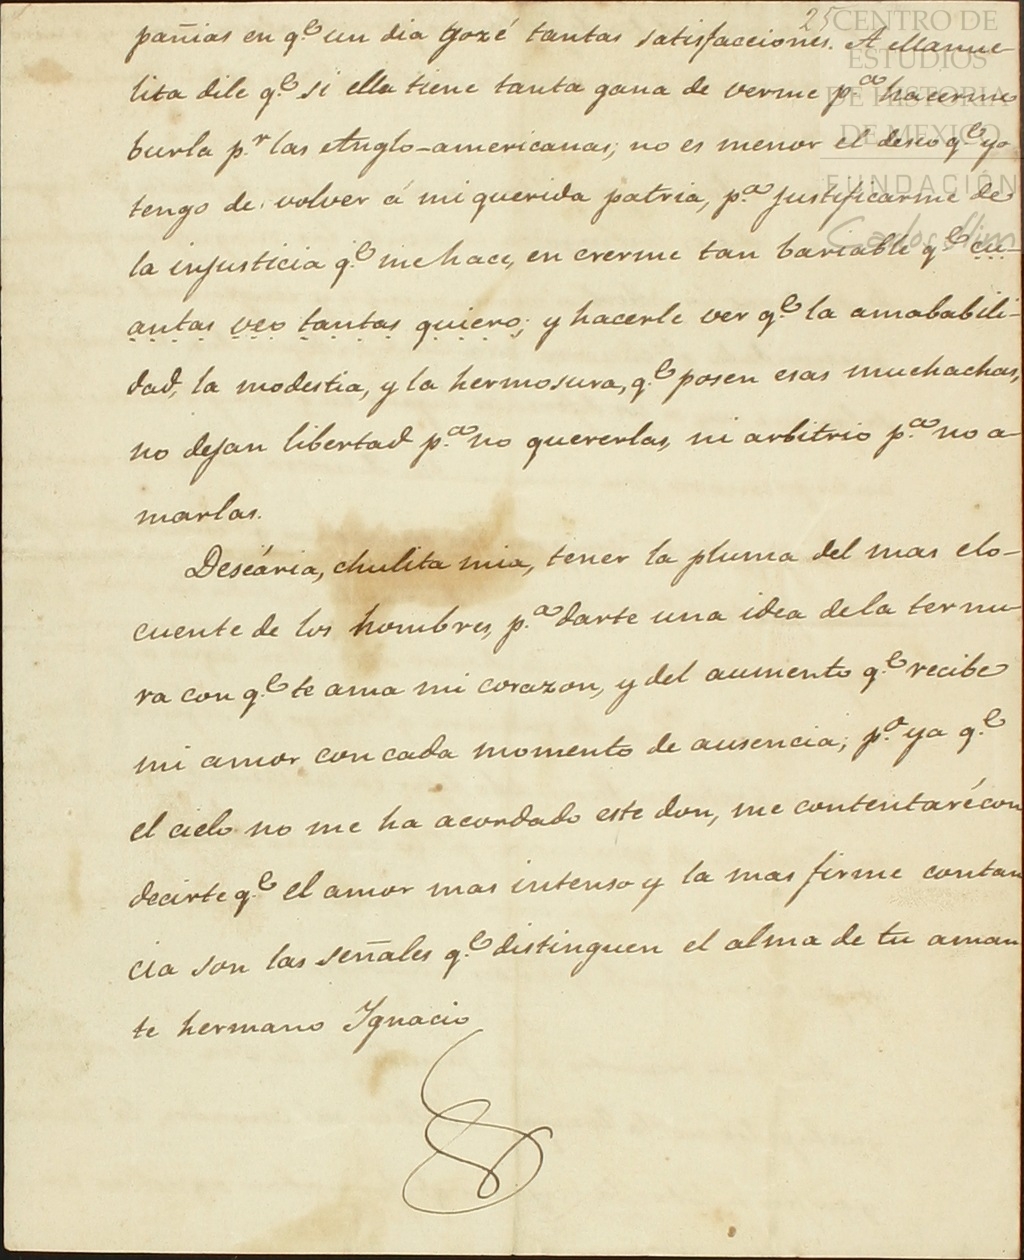 25
CENTRO DE
ESTUDIOS
DE HISTORIA
DE MEXICO
FUNDACIÓN
Carlos Slim
pañias en q.e un dia gozé tantas satisfacciones. A Manue-
lita dile q.e si ella tiene tanta gana de verme p.a hacerme
burla p.r las Anglo-americanas; no es menor el deseo q.e yo
tengo de volver á mi querida patria, p.a justificarme de
la injusticia q.e me hace, en crerme tan bariable q.e cu-
antas veo tantas quiero; y hacerle ver q.e la amababili-
dad, la modestia, y la hermosura, q.e posen esas muchachas,
no dejan libertad p.a no quererlas, ni arbitrio p.a no a-
marlas.
Deseária, chulita mia, tener la pluma del mas elo-
cuente de los hombres, p.a darte una idea de la ternu-
ra con q.e te ama mi corazon, y del aumento q.e recibe
mi amor con cada momento de ausencia; p.o ya q.e
el cielo no me ha acordado este don, me contentaré con
decirte q.e el amor mas intenso y la mas firme contan
cia son las señales q.e distinguen el alma de tu aman
te hermano Ignacio